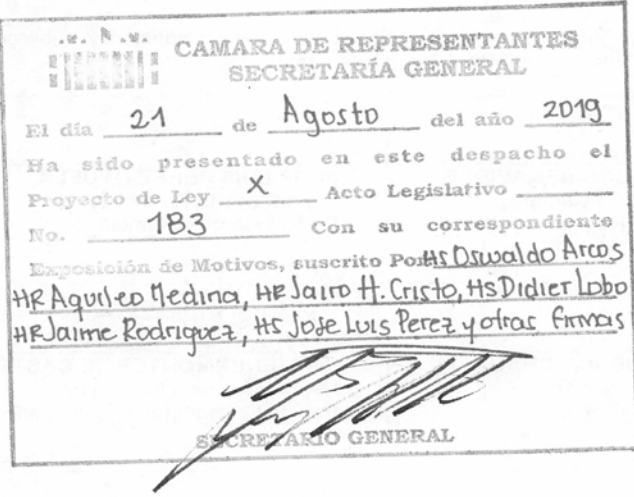 CAMARA DE REPRESENTANTES
SECRETARÍA GENERAL
El día 21 de Agosto del año 2019
Ha sido presentado en este despacho el
Proyecto de Ley X Acto Legislativo
No. 183 Con su correspondiente
Exposición de Motivos, suscrito Por: HS Oswaldo Arcos
HR Aquileo Medina, HR Jairo H. Cristo, HS Didier Lobo
HR Jaime Rodriguez, HS Jose Luis Perez y otras firmas
SECRETARIO GENERAL